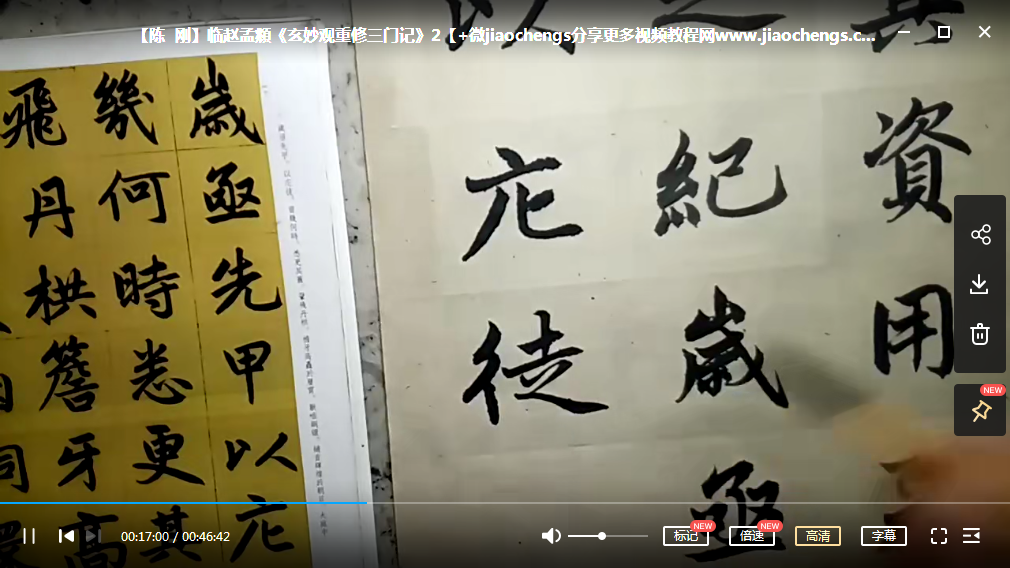 【陈 刚】临赵孟頫《玄妙观重修三门记》2【+微jiaochengs分享更多视频教程网www.jiaochengs.c...
資用
紀歲亟
以
庀徒
歲亟先甲以庀
幾何時悉更其
飛丹栱簷牙高
NEW
00:17:00 / 00:46:42
标记
NEW
倍速
NEW
高清
字幕